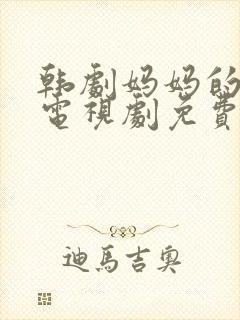 韩劇妈妈的
電視劇免費
迪馬吉奥